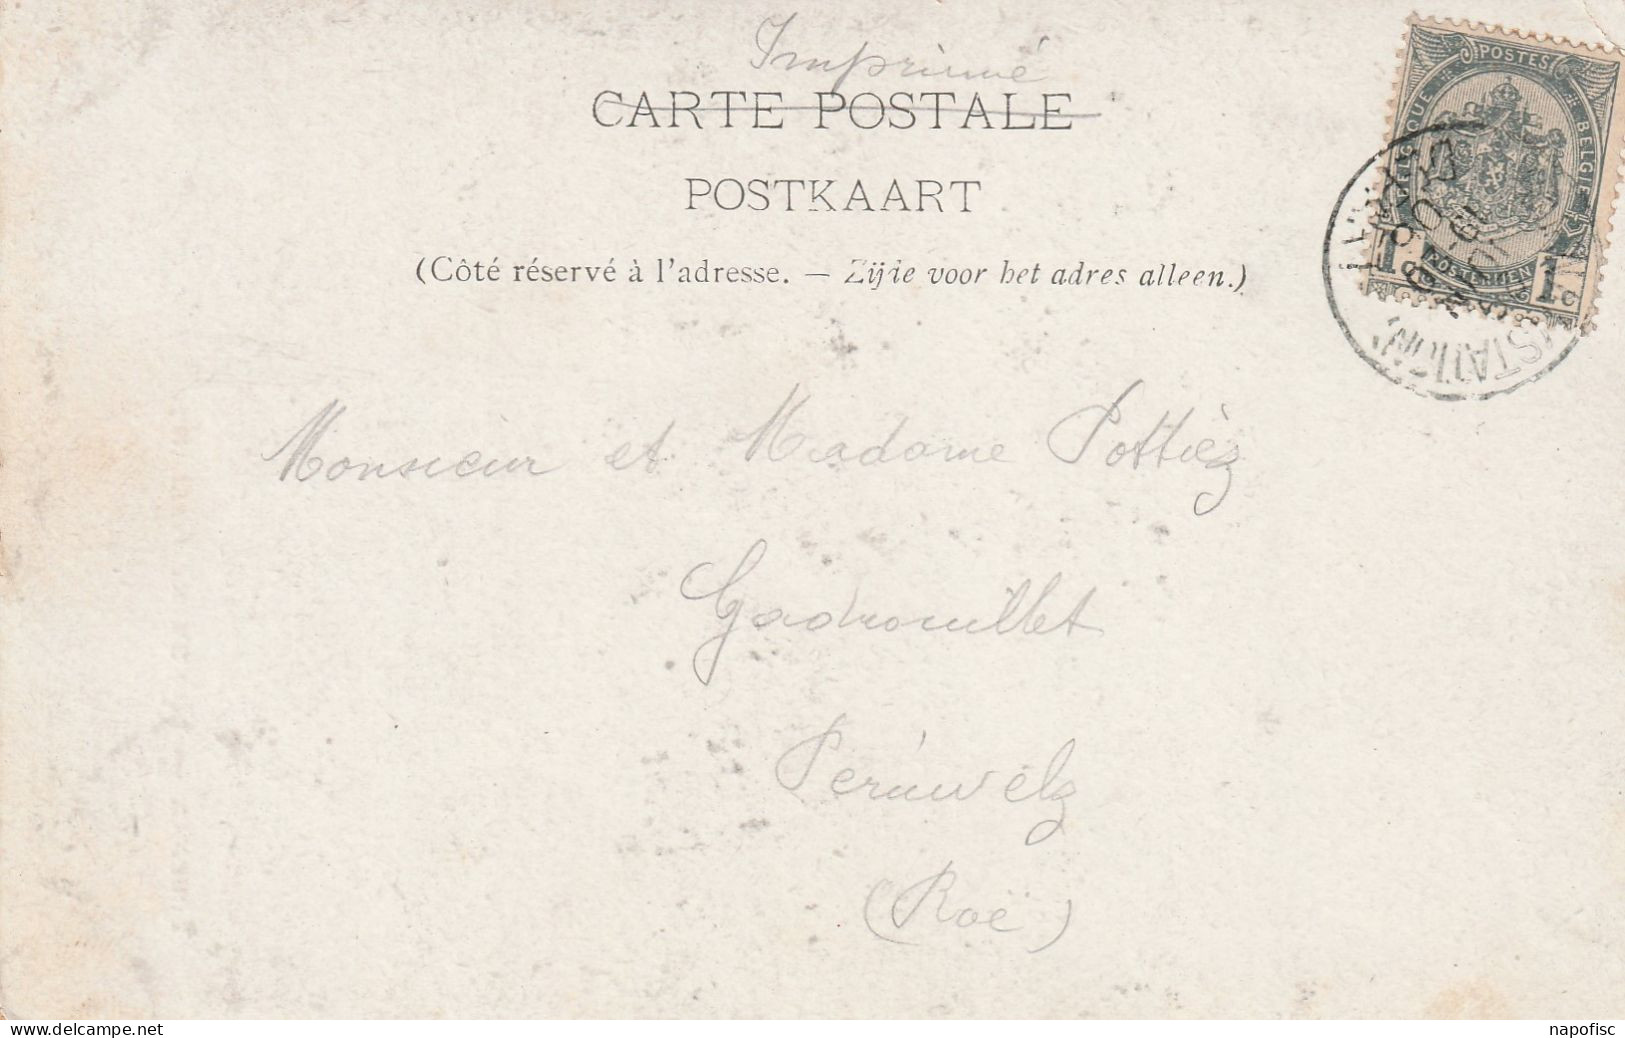 Imprimé
CARTE POSTALE
POSTKAART
(Côté réservé à l'adresse. — Zijde voor het adres alleen.)
POSTES
BELGIE
1c
1c
STATION
Monsieur et Madame Pottiez
Gadrouillet
Péruwelz
(Roë)
www.delcampe.net
napofisc